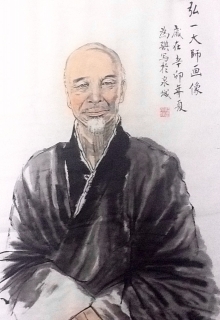 弘一大師画像
歲在辛卯年夏
為骐写於泉城